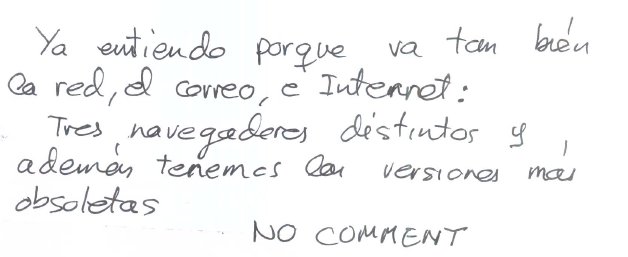 Ya entiendo porque va tan bién
la red, el correo, e Internet:
Tres navegadores distintos y
además tenemos las versiones más
obsoletas
NO COMMENT